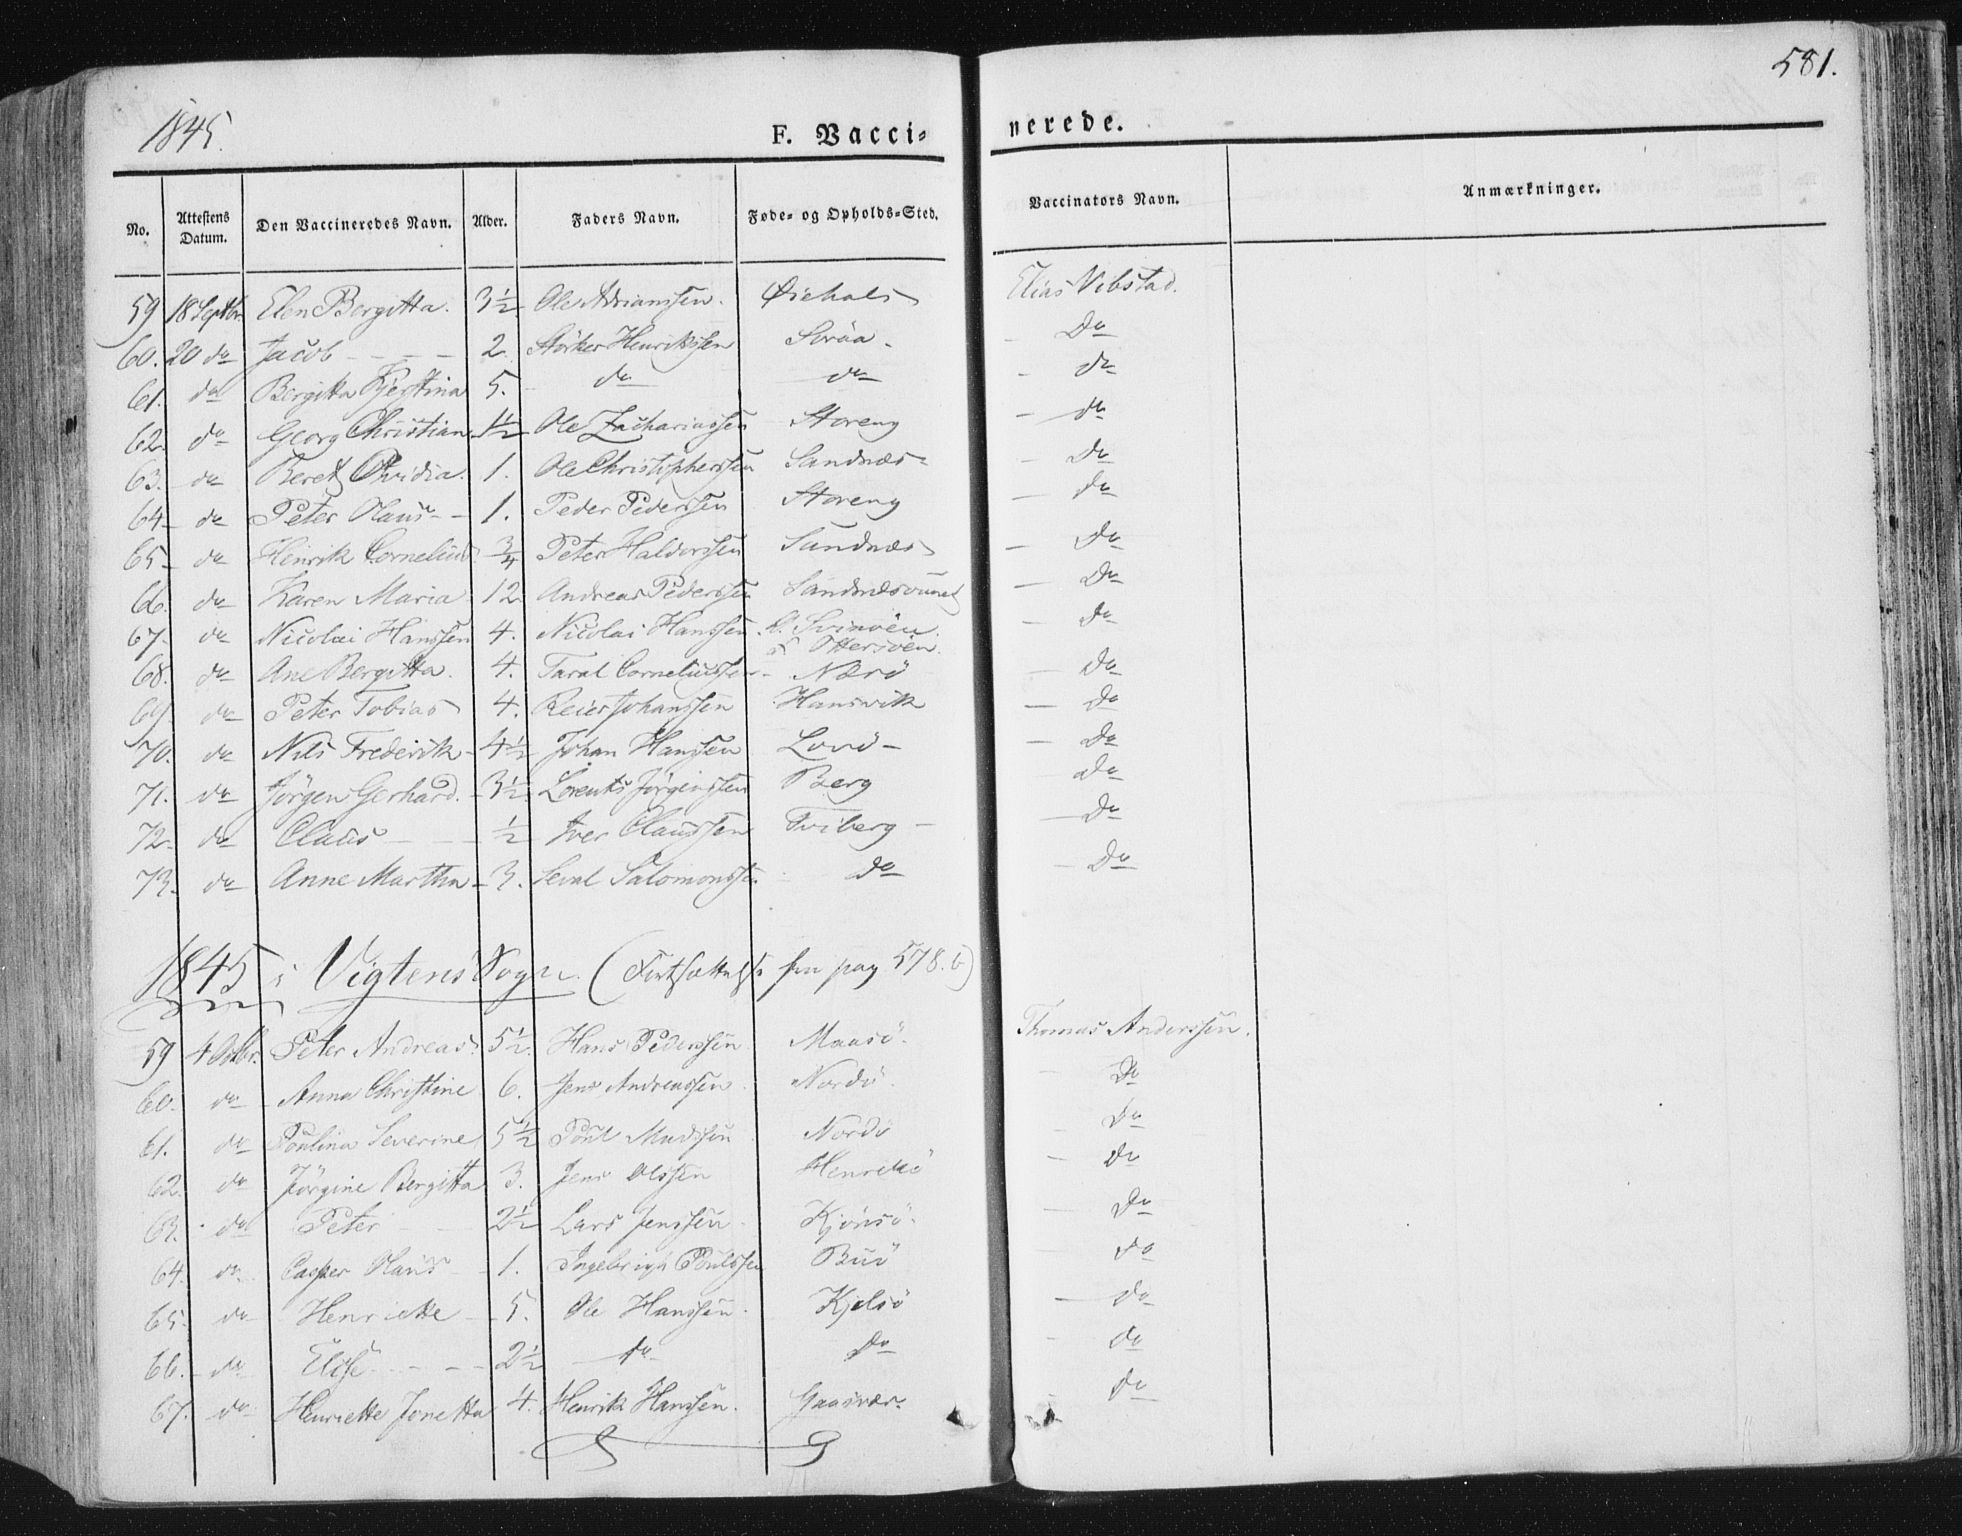 581.
1845.
F. Vacci= nerede.
No. Attestens Datum. Den Vaccineredes Navn. Alder. Faders Navn. Føde= og Opholds=Sted. Vaccinators Navn. Anmærkninger.
59 18 Septbr. Elen Bergitta. 3½ Ole Adrianssen. Øiehals Elias Vibstad.
60. 20 do Jacob - - - 2. Störker Henrikssen Soröa - - Do
61. do Bergitta Kjerstina 5. do do - do
62. do Georg Christian 1½ Ole Zachariassen Storeng - do
63. do Beret 1. Ole Christopherssen Sandnæs= - Do
64 do Peter Olaus - - 1. Peder Pederssen Storeng - do
65 do Henrik Cornelius ¾ Peter Haldorssen Sandnæs - Do
66. do Karen Maria 12 Andreas Pederssen Sandnæsvunet - Do
67. do Nicolai Hanssen 4. Nicolai Hanssen. Svinöen. Ottersöen. - Do
68. do Ane Bergitta. 4. Taral Corneliussen - Nærö - Do
69. do Peter Tobias 4. Reier Johanssen Hansvik - Do
70. do Nils Frederik - 4½ Johan Hanssen Lovö - - Do
71. do Jörgen Gerhard. 3½ Lorents Jörginssen Berg - Do
72. do Claus - - - ½ Iver Claussen Tviberg - - Do
73. do Anne Martha - 3. Seval Salomonssen do - Do
1845 i Vigtens Sogn. (Fortsættelse fra pag 578. b)
59 4 Octbr. Peter Andreas. 5½. Hans Pederssen Maasö. Thomas Anderssen.
60. do Anna Christine 6. Jens Andreassen. Nordö. - Do
61. do Poulina Severine 5½ Poul Madssen Nordö - Do
62. do Jörgine Bergitta 3. Jens Olssen - Do
63. do Peter - - 2½ Lars Jenssen. Kjönsö. - Do
64. do Casper Olaus - 1. Ingebrigt Poulssen Buö - do
65. do Henriette - 5. Ole Hanssen. Kjelsö - do
66. do Elise - - - 2½ do Do - do
67. do Henriette Jonetta 4. Henrik Hanssen. Gaasvær. - do